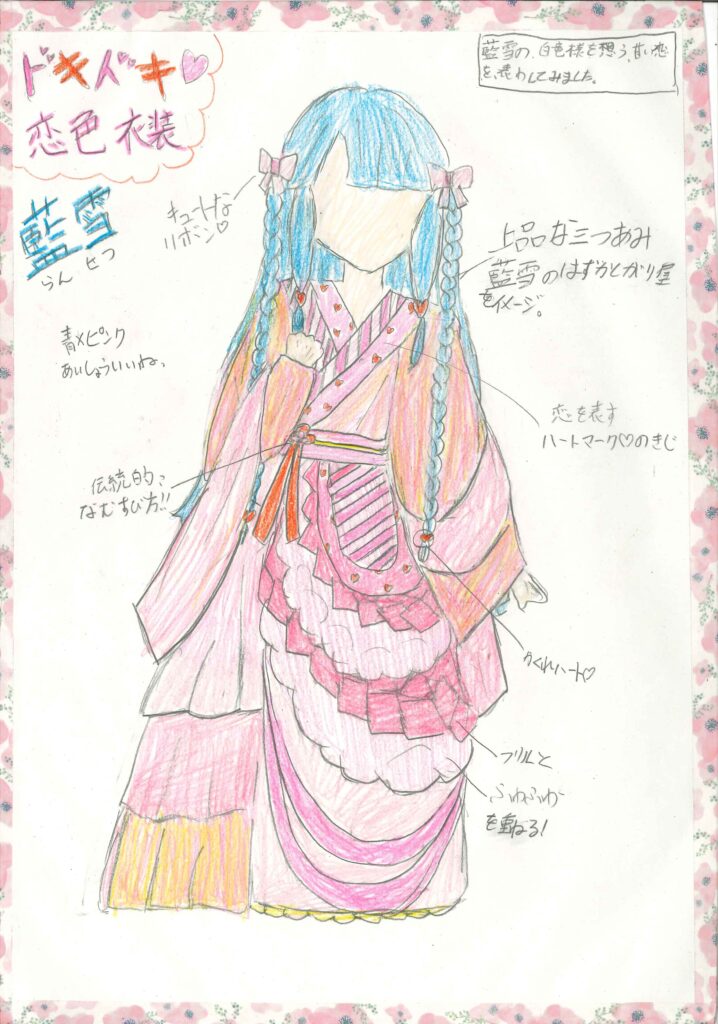 ドキドキ♡
恋色衣装
藍雪の、白色様を想う、甘い恋
を、表わしてみました。
藍雪
らん せつ
キュートな
リボン♡
上品な三つあみ
藍雪のはずかしがり屋
をイメージ。
青×ピンク
あいしょういいね。
恋を表す
ハートマーク♡のきじ
伝統的
なむすび方!!
かくれハート♡
フリルと
ふわふわ
を重ねる!